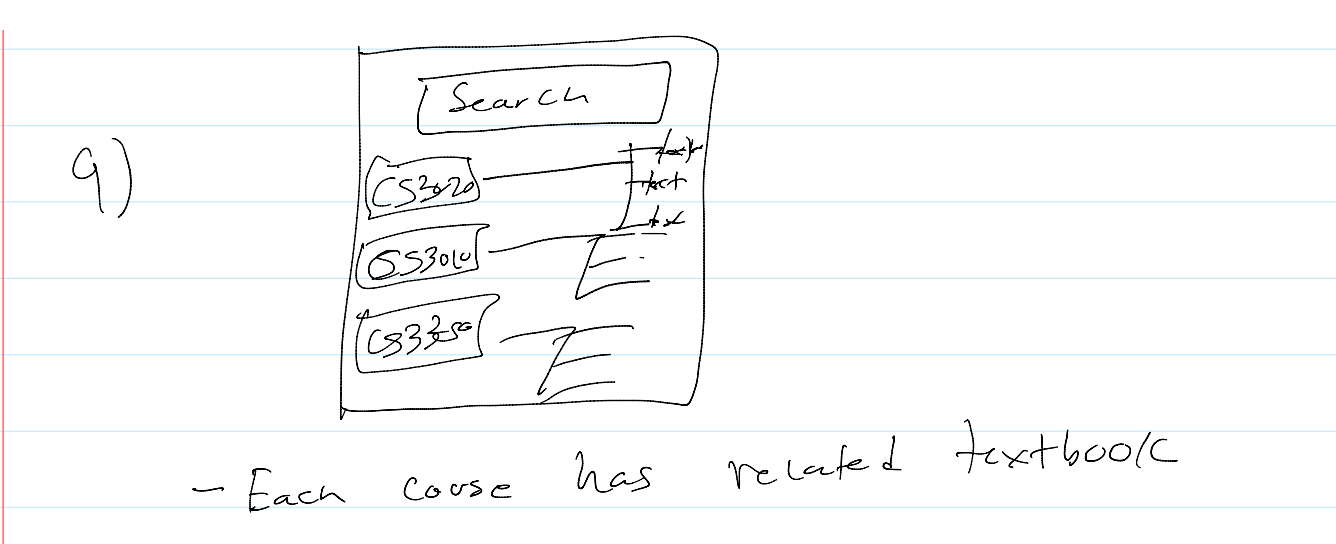 9)
Search
CS3020
text
text
CS3010
CS3350
- Each couse has related textbook